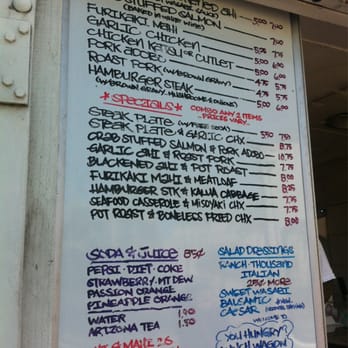 STUFFED SALMON
(BAKED IN WHITE WINE) 5.00 7.00
FURIKAKI MAHI 7.00
GARLIC CHICKEN
CHICKEN KATSU OR CUTLET 5.00 7.00
PORK ADOBO 5.75 7.75
ROAST PORK (W/BROWN GRAVY) 4.75 5.75
HAMBURGER STEAK 4.75 5.75
(W/BROWN GRAVY, MUSHROOMS & ONIONS) 5.00 6.00
*SPECIALS* COMBO ANY 2 ITEMS
PRICES VARY
STEAK PLATE (W/FREE SODA) 5.50 7.50
STEAK PLATE & GARLIC CHX 8.75
CRAB STUFFED SALMON & PORK ADOBO 8.75
GARLIC AHI & ROAST PORK 10.75
BLACKENED AHI & POT ROAST 7.75
FURIKAKI MAHI & MEATLOAF 8.00
HAMBURGER STK & KALUA CABBAGE 8.25
SEAFOOD CASSEROLE & MISOYAKI CHX 7.75
POT ROAST & BONELESS FRIED CHX 8.00
SODA & JUICE 85¢
PEPSI · DIET · COKE
STRAWBERRY · MT DEW
PASSION ORANGE
PINEAPPLE ORANGE
WATER 1.00
ARIZONA TEA 1.50
SALAD DRESSINGS
RANCH · THOUSAND
ITALIAN
25¢ MORE
SWEET WASABI
BALSAMIC
CAESAR
WELCOME TO
YOU HUNGRY?
LUNCH WAGON